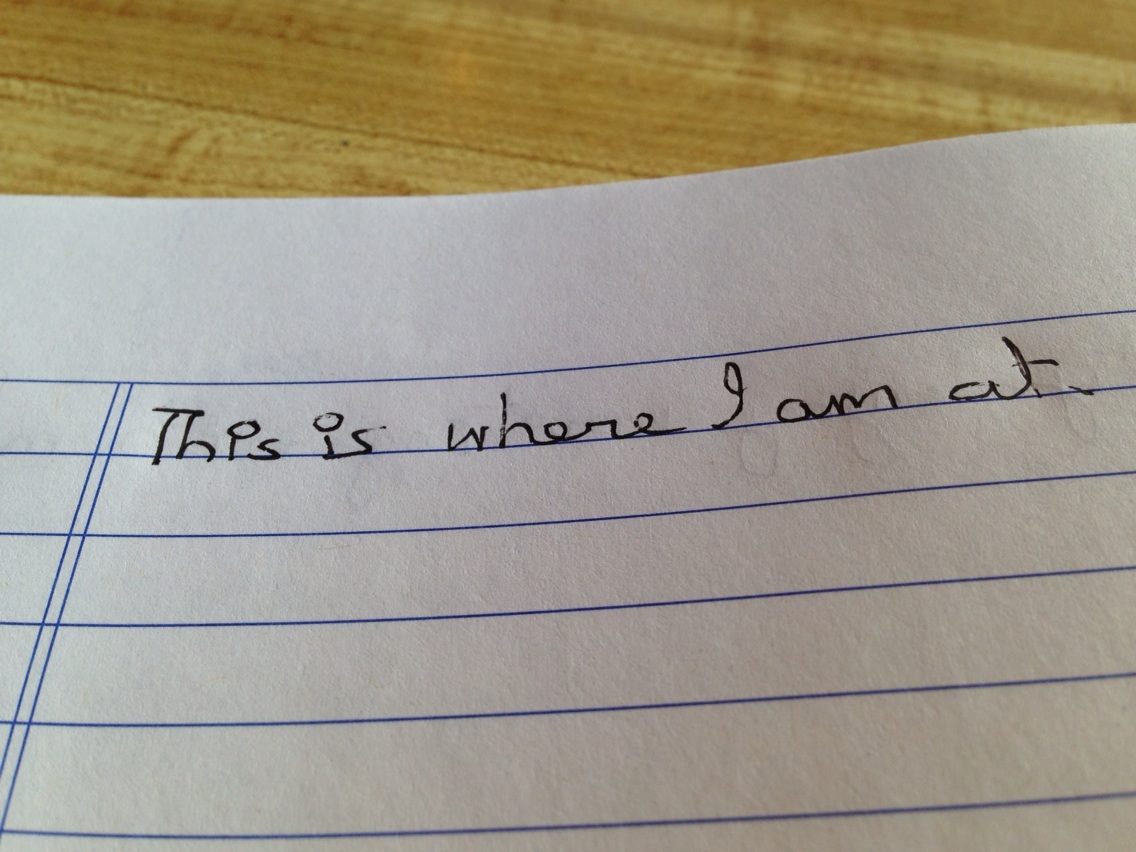 This is where I am at.